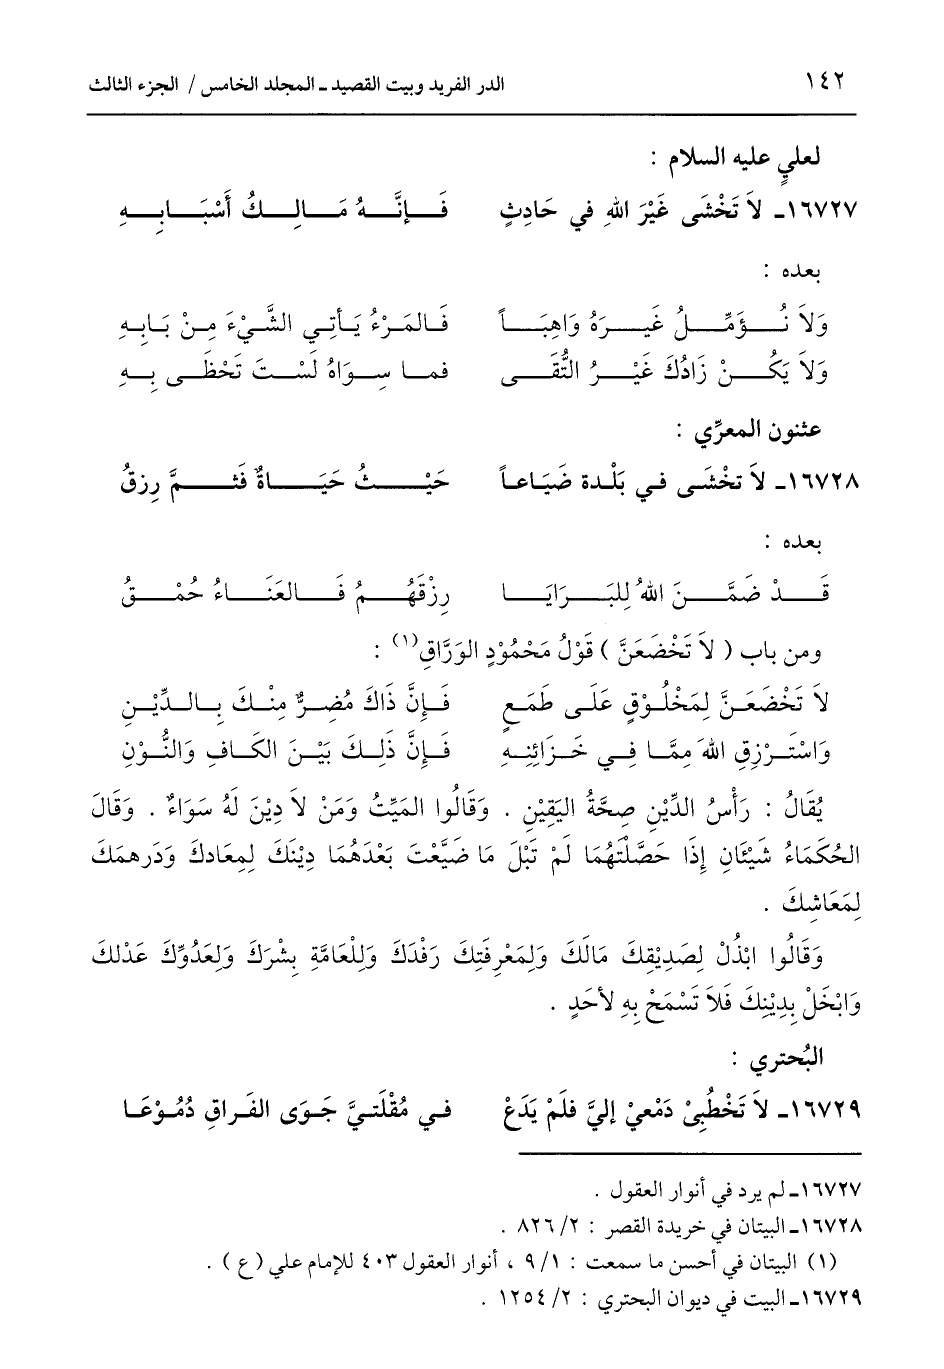 ١٤٢ الدر الفريد وبيت القصيد ـ المجلد الخامس / الجزء الثالث
لعليٍ عليه السلام :
١٦٧٢٧ـ لاَ تَخْشَى غَيْرَ اللهِ في حَادِثٍ فَإِنَّهُ مَالِكُ أَسْبَابِهِ
بعده :
وَلاَ نُؤَمِّلُ غَيرَهُ وَاهِبَاً فَالمَرْءُ يَأتِي الشَّيْءَ مِنْ بَابِهِ
وَلاَ يَكُنْ زَادُكَ غَيْرُ التُّقَى فما سِوَاهُ لَسْتَ تَحْظَى بِهِ
عثنون المعرِّي :
١٦٧٢٨ـ لاَ تخْشَى في بَلْدة ضَيَاعاً حَيْثُ حَيَاةٌ فَثمَّ رِزقُ
بعده :
قَدْ ضَمَّنَ اللهُ لِلبَرَايَا رِزْقَهُمُ فَالعَنَاءُ حُمْقُ
ومن باب ( لاَ تَخْضَعَنَّ ) قَوْلُ مَحْمُوْدٍ الوَرَّاقِ(١) :
لاَ تَخْضَعَنَّ لِمَخْلُوْقٍ عَلَى طَمَعٍ فَإِنَّ ذَاكَ مُضِرٌّ مِنْكَ بِالدِّيْنِ
وَاسْتَرْزِقِ اللهَ مِمَّا فِي خَزَائِنِهِ فَإِنَّ ذَلِكَ بَيْنَ الكَافِ وَالنُّوْنِ
يُقَالُ : رَأْسُ الدِّيْنِ صِحَّةُ اليَقِيْنِ . وَقَالُوا المَيِّتُ وَمَنْ لاَ دِيْنَ لَهُ سَوَاءٌ . وَقَالَ
الحُكَمَاءُ شَيْئَانِ إِذَا حَصَّلْتَهُمَا لَمْ تَبْلَ مَا ضَيَّعْتَ بَعْدَهُمَا دِيْنَكَ لِمِعَادكَ وَدَرهمَكَ
لِمَعَاشكَ .
وَقَالُوا ابْذُلْ لِصَدِيْقِكَ مَالَكَ وَلِمَعْرِفَتِكَ رَفْدَكَ وَلِلْعَامَّةِ بِشْرَكَ وَلِعَدُوِّكَ عَدْلكَ
وَابْخَلْ بِدِيْنِكَ فَلاَ تَسْمَحْ بِهِ لأحَدٍ .
البُحتري :
١٦٧٢٩ـ لاَ تَخْطُبِيْ دَمْعِيْ إليَّ فلَمْ يَدَعْ في مُقْلَتيَّ جَوَى الفَراقِ دُمُوْعَا
١٦٧٢٧ـ لم يرد في أنوار العقول .
١٦٧٢٨ـ البيتان في خريدة القصر : ٢/ ٨٢٦ .
(١) البيتان في أحسن ما سمعت : ١/ ٩ ، أنوار العقول ٤٠٣ للإمام علي (ع ) .
١٦٧٢٩ـ البيت في ديوان البحتري : ٢/ ١٢٥٤ .